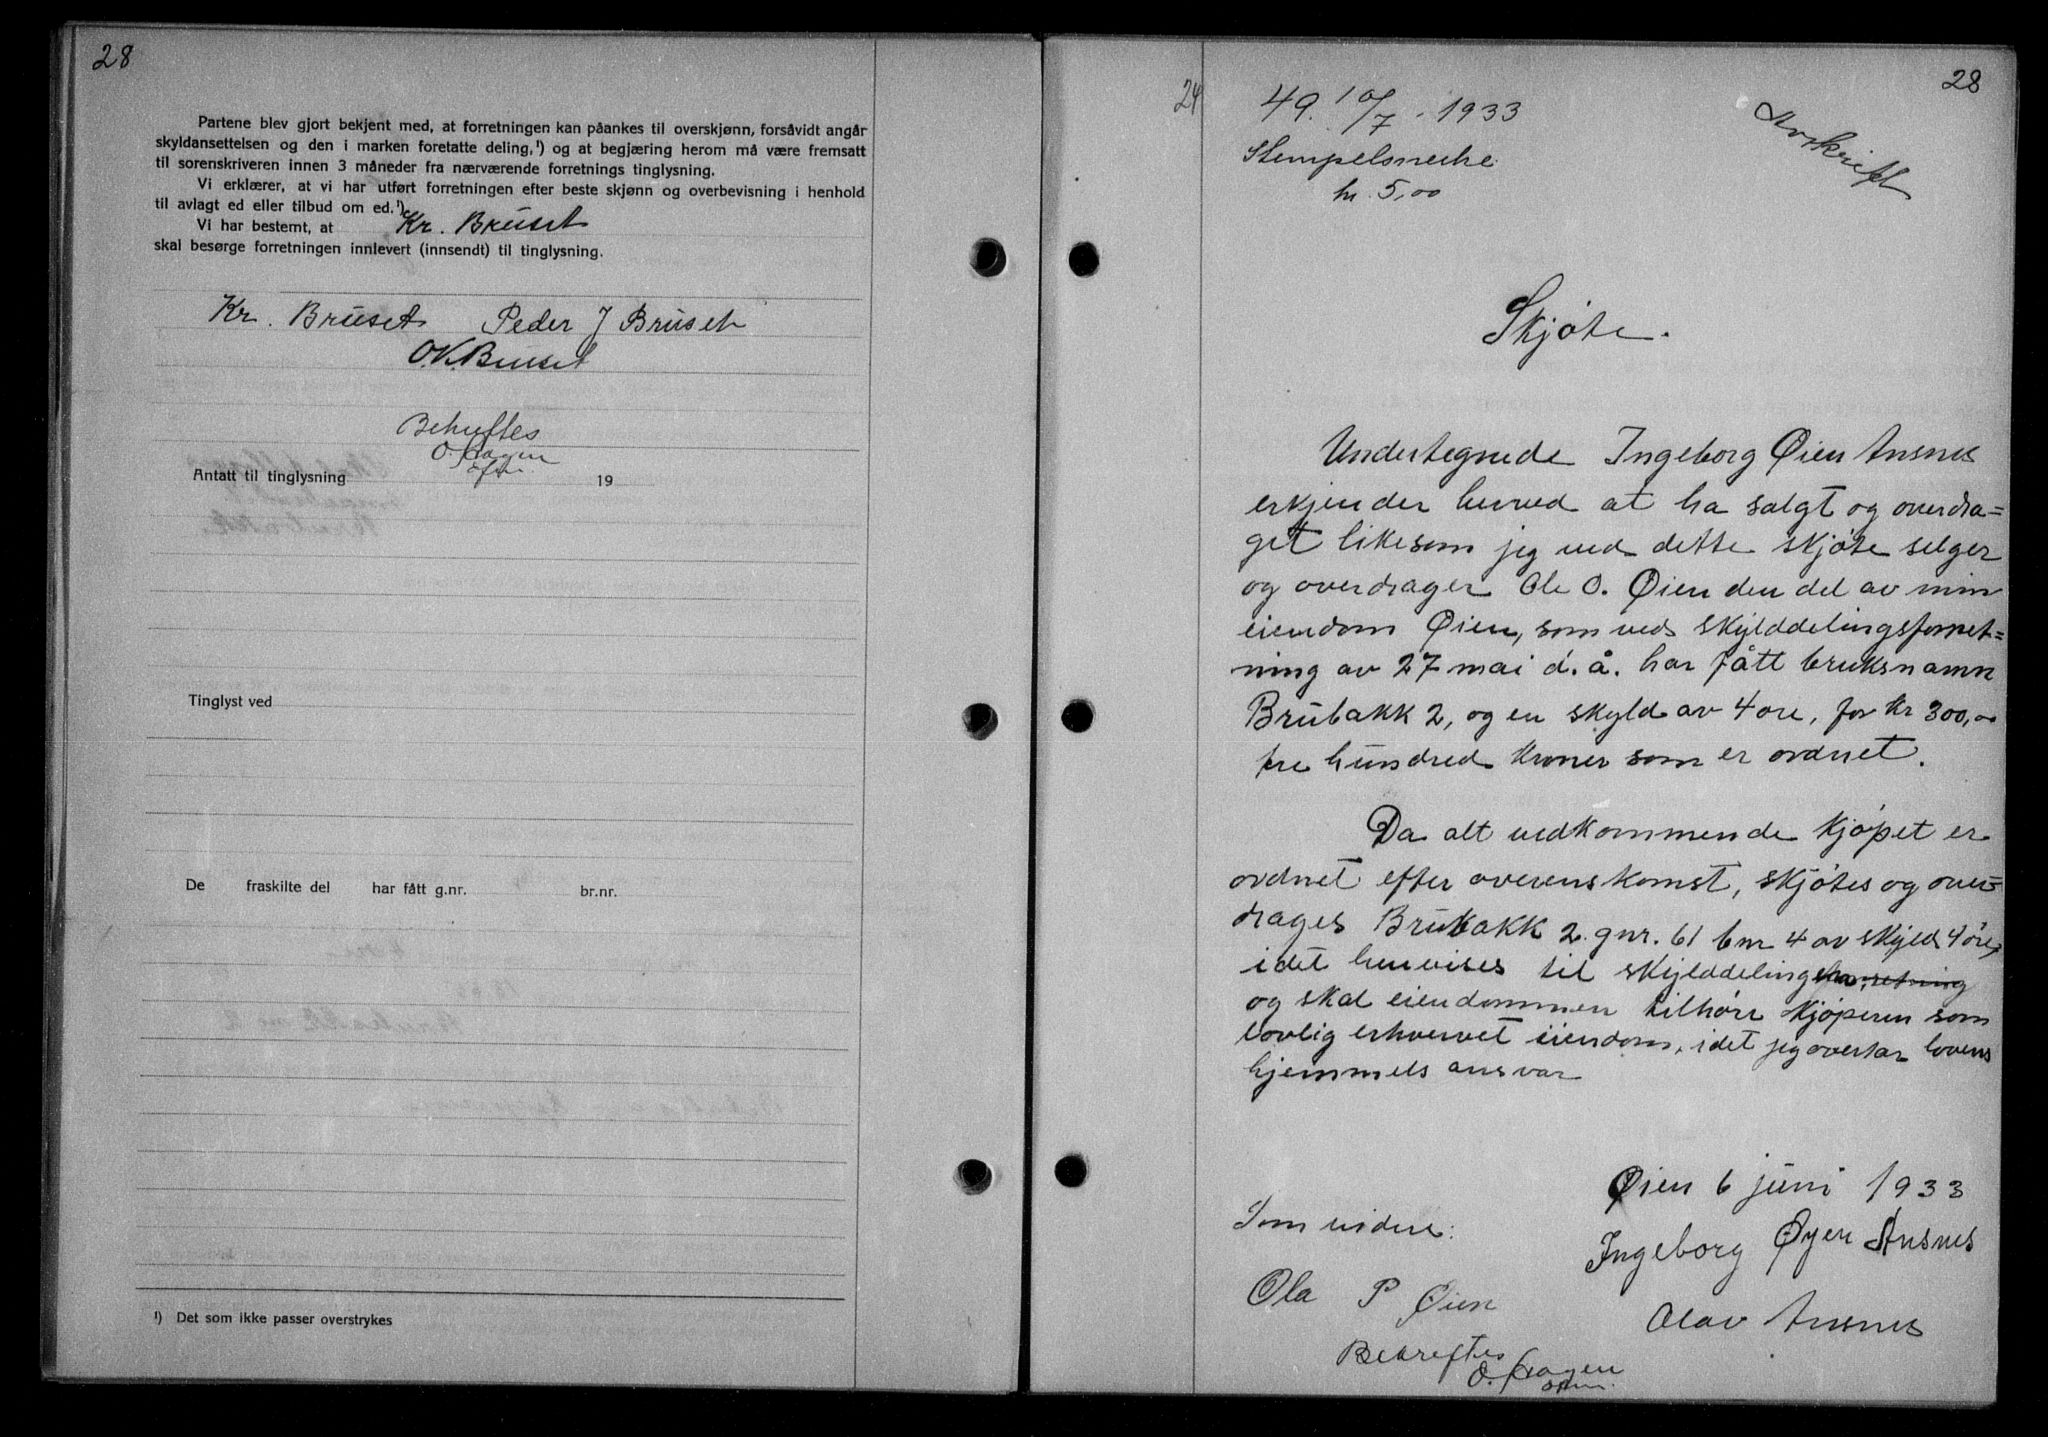 28
Partene blev gjort bekjent med, at forretningen kan påankes til overskjønn, forsåvidt angår
skyldansettelsen og den i marken foretatte deling,¹) og at begjæring herom må være fremsatt
til sorenskriveren innen 3 måneder fra nærværende forretnings tinglysning.
Vi erklærer, at vi har utført forretningen efter beste skjønn og overbevisning i henhold
til avlagt ed eller tilbud om ed.¹)
Vi har bestemt, at Kr. Bruset
skal besørge forretningen innlevert (innsendt) til tinglysning.
Kr. Bruset Peder J Bruset
O.K. Bruset
Bekreftes
O. Hagen
Antatt til tinglysning 19
Tinglyst ved
De fraskilte del har fått g.nr. br.nr.
¹) Det som ikke passer overstrykes
24
28
49. 10/7 - 1933
Stempelmerke
kr. 5,00
Avskrift
Skjøte.
Undertegnede Ingeborg Øien Ansnes
erkjender herved at ha salgt og overdra=
get likesom jeg ved dette skjøte selger
og overdrager Ole O. Øien den del av min
eiendom Øien, som ved skylddelingsforret=
ning av 27 mai d.å. har fått bruksnamn
Brubakk 2, og en skyld av 4 øre, for kr 300,00
tre hundred kroner som er ordnet.
Da alt vedkommende kjøpet er
ordnet efter overenskomst, skjøtes og over=
drages Brubakk 2 gnr. 61 bnr 4 av skyld 4 øre,
idet henvises til skylddelingsforretning
og skal eiendommen tilhøre kjøperen som
lovlig erhvervet eiendom, idet jeg overtar lovens
hjemmels ansvar
Øien 6 juni 1933
Ingeborg Øyen Ansnes
Olav Ansnes
Som vidne:
Ola P Øien
Bekreftes
O. Hagen